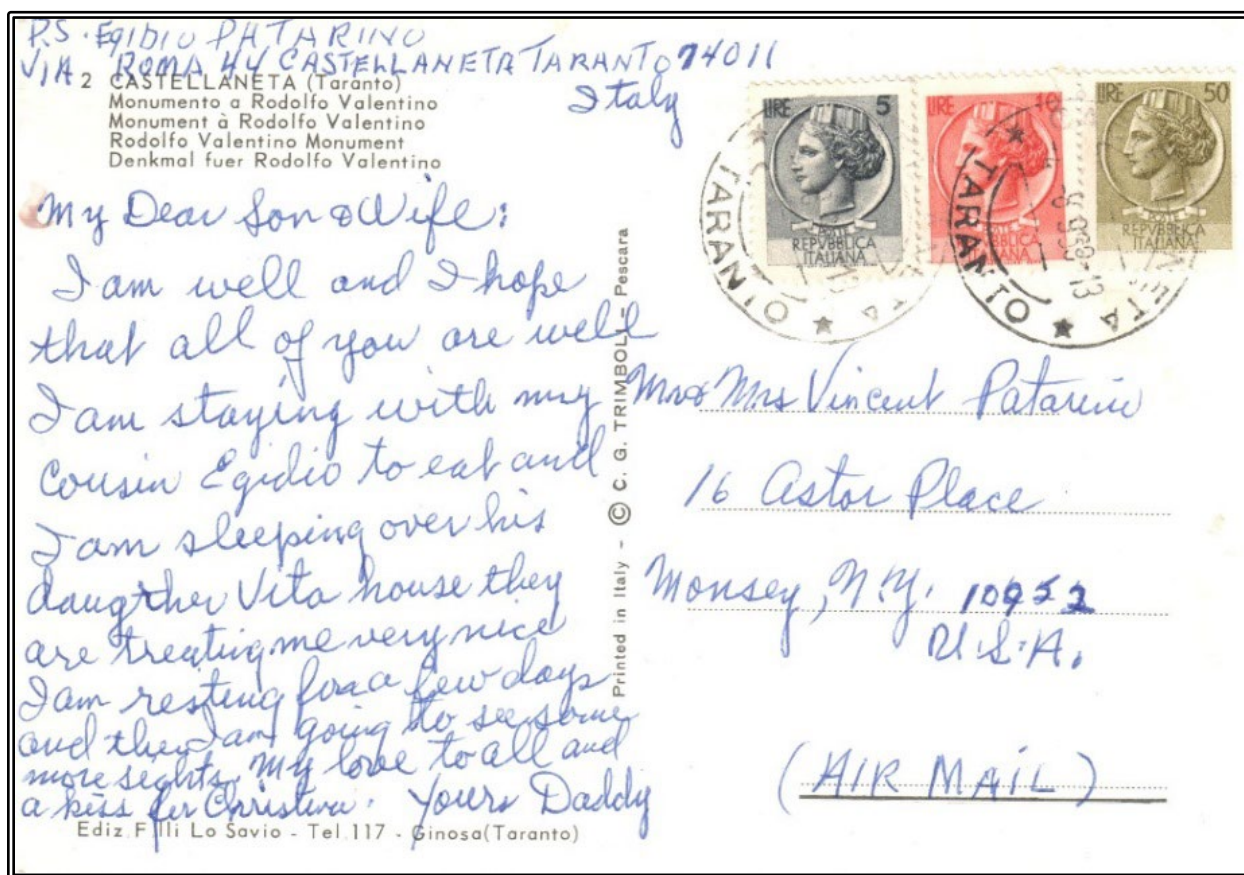 P.S. EGIDIO PATARINO
VIA ROMA 44 CASTELLANETA TARANTO 74011
Italy
2 CASTELLANETA (Taranto)
Monumento a Rodolfo Valentino
Monument à Rodolfo Valentino
Rodolfo Valentino Monument
Denkmal fuer Rodolfo Valentino
My Dear Son & Wife:
I am well and I hope
that all of you are well
I am staying with my
Cousin Egidio to eat and
I am sleeping over his
daugther Vita house they
are treating me very nice
I am resting for a few days
and then I am going to see some
more sights. My love to all and
a kiss for Christine. Yours Daddy
Ediz. F.lli Lo Savio - Tel. 117 - Ginosa (Taranto)
Printed in Italy - © C. G. TRIMBOLI - Pescara
LIRE 5
POSTE
REPVBBLICA
ITALIANA
LIRE
ITALIANA
LIRE 50
REPVBBLICA
ITALIANA
TARANTO
TARANTO
Mr & Mrs Vincent Patarino
16 Astor Place
Monsey, N.Y. 10952
U.S.A.
(AIR MAIL)